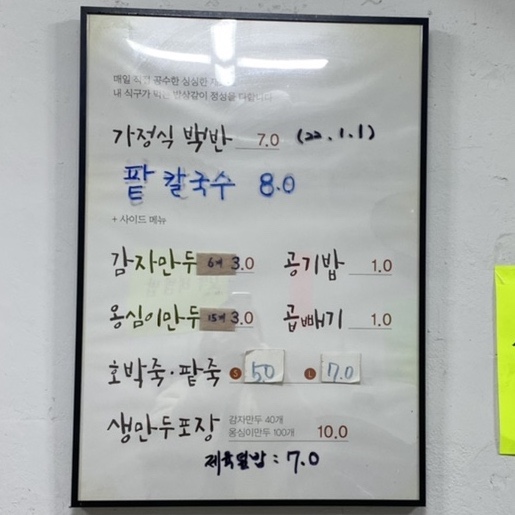 매일 직접 공수한 싱싱한
내 식구가 먹는 밥상같이 정성을 다합니다
가정식 백반 7.0 (22.1.1)
팥 칼국수 8.0
+ 사이드 메뉴
감자만두 6개 3.0 공기밥 1.0
옹심이만두 15개 3.0 곱빼기 1.0
호박죽·팥죽 S 50 L 7.0
생만두포장 감자만두 40개
옹심이만두 100개 10.0
제육덮밥 : 7.0